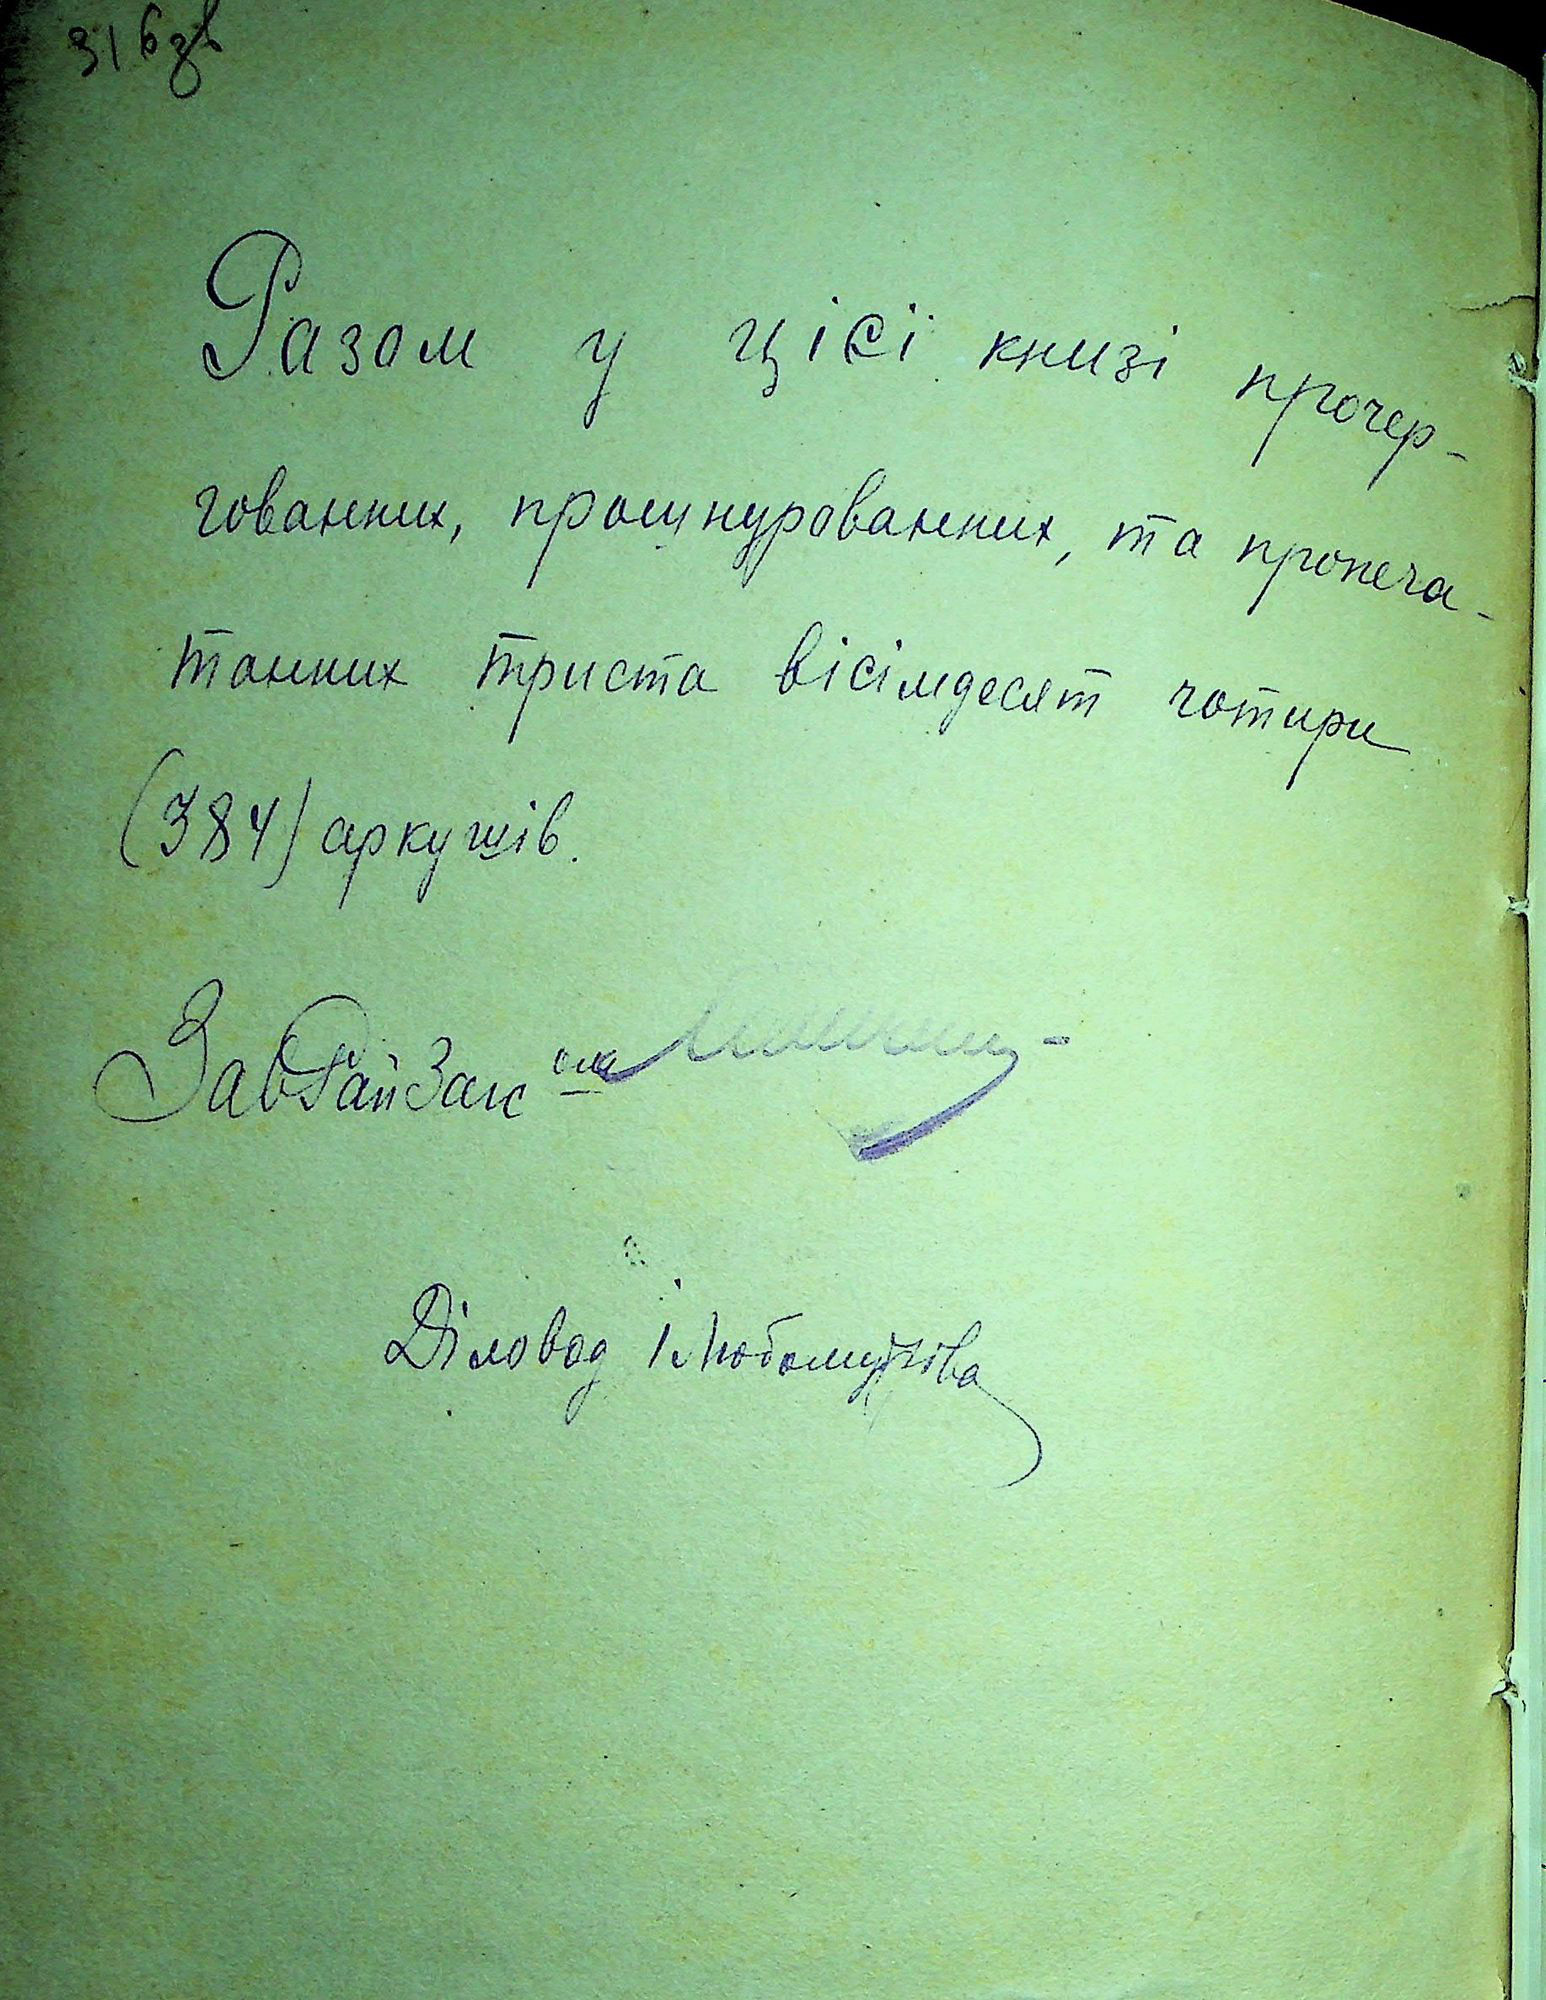 316зв
Разом у цієї книзі прочер-
гованних, прошнурованних, та пропеча-
танних триста вісімдесят чотири
(384) аркушів.
ЗавРайЗаг
Діловод